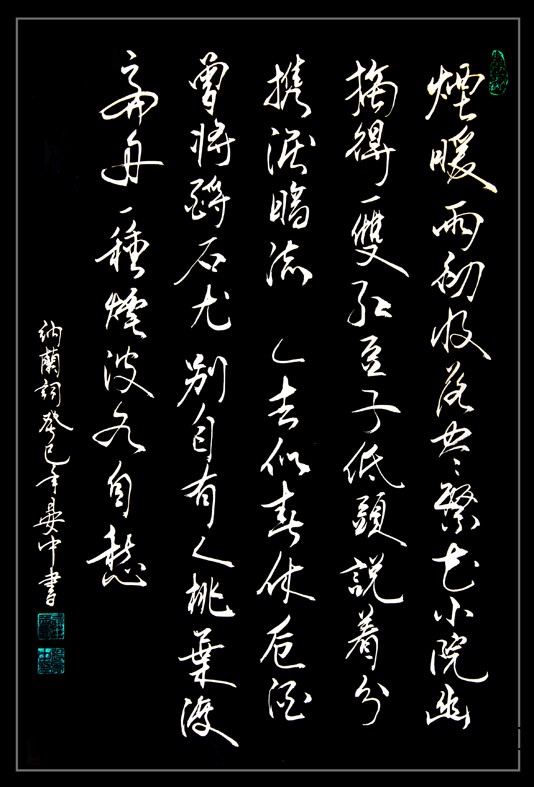 煙暖雨初收落尽繁花小院幽
摘得一雙紅豆子低頭説着分
携淚暗流 人去似春休卮酒
曾將酹石尤别自有人桃葉渡
扁舟一種煙波各自愁
納蘭詞癸巳年晏中書